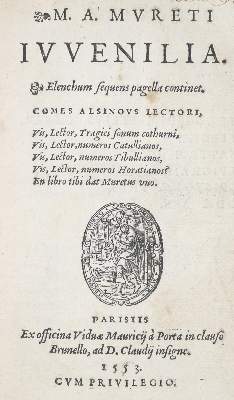 M. A. MVRETI
IVVENILIA.
Elenchum sequens pagella continet.
COMES ALSINOVS LECTORI,
Vis, Lector, Tragici sonum cothurni,
Vis, Lector, numeros Catullianos,
Vis, Lector, numeros Tibullianos,
Vis, Lector, numeros Horatianos?
En libro tibi dat Muretus vno.
PARISIIS
Ex officina Viduæ Mauricij à Porta in clauso
Brunello, ad D. Claudij insigne.
1553.
CVM PRIVILEGIO.